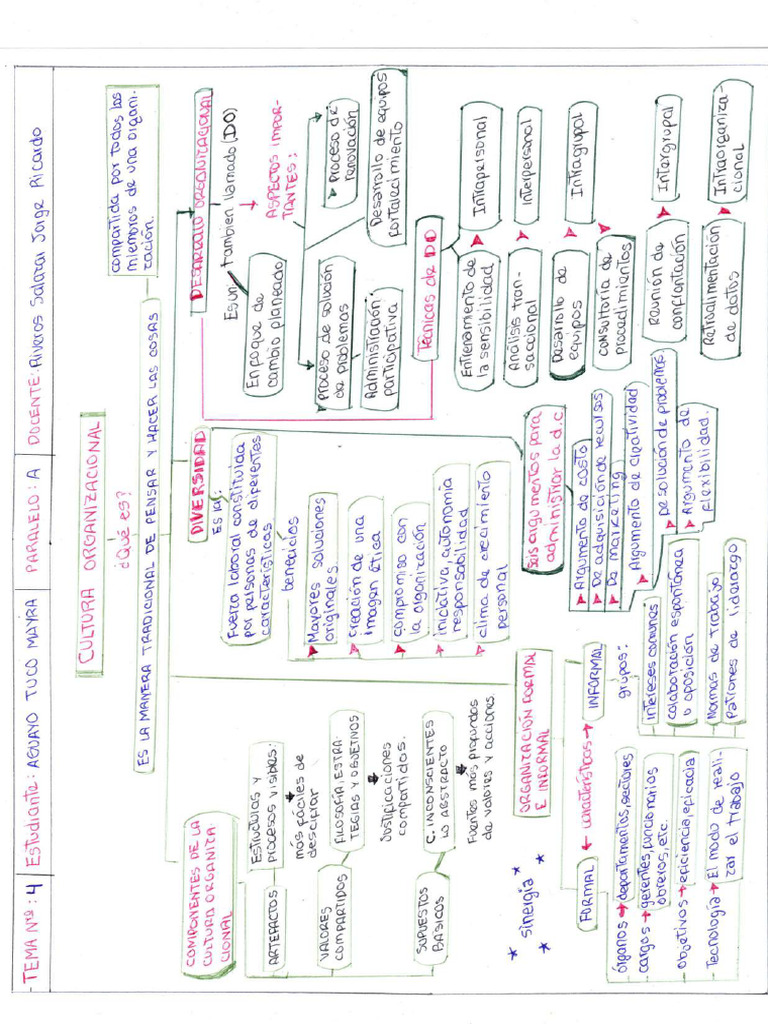 TEMA Nº: 4
Estudiante: AGUAYO TUCO MAYRA
PARALELO: A
DOCENTE: Riveros Salazar Jorge Ricardo
CULTURA ORGANIZACIONAL
¿Qué es?
ES LA MANERA TRADICIONAL DE PENSAR Y HACER LAS COSAS
compartida por todos los
miembros de una organi-
zación.
COMPONENTES DE LA
CULTURA ORGANIZA
CIONAL
ARTEFACTOS
Estructuras y
procesos visibles.
más fáciles de
descifrar
VALORES
COMPARTIDOS
FILOSOFÍA, ESTRA-
TEGIAS Y OBJETIVOS
Justificaciones
compartidos.
SUPUESTOS
BÁSICOS
C. INCONSCIENTES
LO ABSTRACTO
Fuentes más profundas
de valores y acciones.
DIVERSIDAD
Es la:
Fuerza laboral constituida
por personas de diferentes
características
beneficios
Mayores soluciones
originales.
creación de una
imagen ética
compromiso con
la organización
iniciativa, autonomía
responsabilidad
clima de crecimiento
personal
Seis argumentos para
administrar la d.c.
Argumento de costo
De adquisición de recursos
De marketing
Argumento de creatividad
De solución de problemas
Argumento de
flexibilidad.
DESARROLLO ORGANIZACIONAL
también llamado (DO)
Es un:
Enfoque de
cambio planeado
ASPECTOS IMPOR-
TANTES:
proceso de solución
de problemas
Proceso de
renovación
Administración
participativa
Desarrollo de equipos
fortalecimiento
Técnicas de DO
Entrenamiento de
la sensibilidad
Intrapersonal
Análisis tran-
saccional
Interpersonal
Desarrollo de
equipos
Intragrupal
consultoría de
procedimientos
Reunión de
confrontación
Intergrupal
Retroalimentación
de datos
Intraorganiza-
cional
* sinergia *
ORGANIZACIÓN FORMAL
E INFORMAL
FORMAL
características
INFORMAL
órganos departamentos, sectores
cargos gerentes, funcionarios
obreros, etc.
objetivos eficiencia, eficacia
Tecnología El modo de reali-
zar el trabajo
grupos:
intereses comunes
colaboración espontánea
u oposición
Normas de trabajo
Patrones de liderazgo